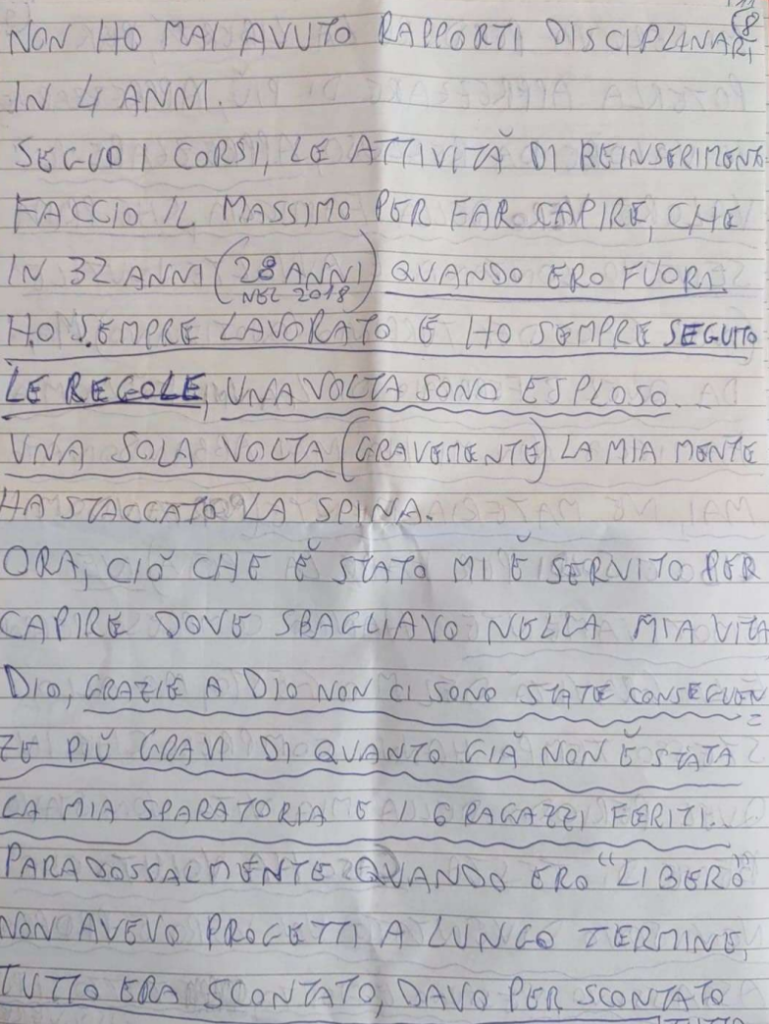 8
NON HO MAI AVUTO RAPPORTI DISCIPLINARI
IN 4 ANNI.
SEGUO I CORSI, LE ATTIVITĂ DI REINSERIMENTO
FACCIO IL MASSIMO PER FAR CAPIRE, CHE
IN 32 ANNI (28 ANNI NEL 2018) QUANDO ERO FUORI
HO SEMPRE LAVORATO E HO SEMPRE SEGUITO
LE REGOLE, UNA VOLTA SONO ESPLOSO...
UNA SOLA VOLTA (GRAVEMENTE) LA MIA MENTE
HA STACCATO LA SPINA.
ORA, CIÒ CHE È STATO MI È SERVITO PER
CAPIRE DOVE SBAGLIAVO NELLA MIA VITA
DIO, GRAZIE A DIO NON CI SONO STATE CONSEGUEN=
ZE PIÙ GRAVI DI QUANTO GIÀ NON È STATA
LA MIA SPARATORIA E I 6 RAGAZZI FERITI...
PARADOSSALMENTE QUANDO ERO "LIBERO"
NON AVEVO PROGETTI A LUNGO TERMINE,
TUTTO ERA SCONTATO, DAVO PER SCONTATO